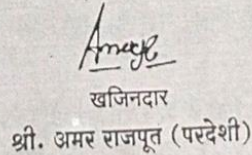 खजिनदार
श्री. अमर राजपूत (परदेशी)